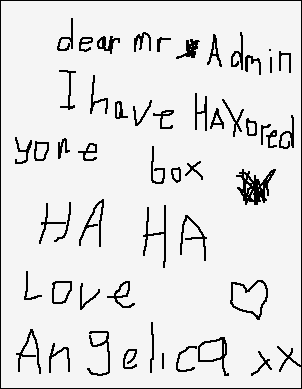 dear mr Admin
I have HAXored
yore box
HA HA
Love
Angelica xx